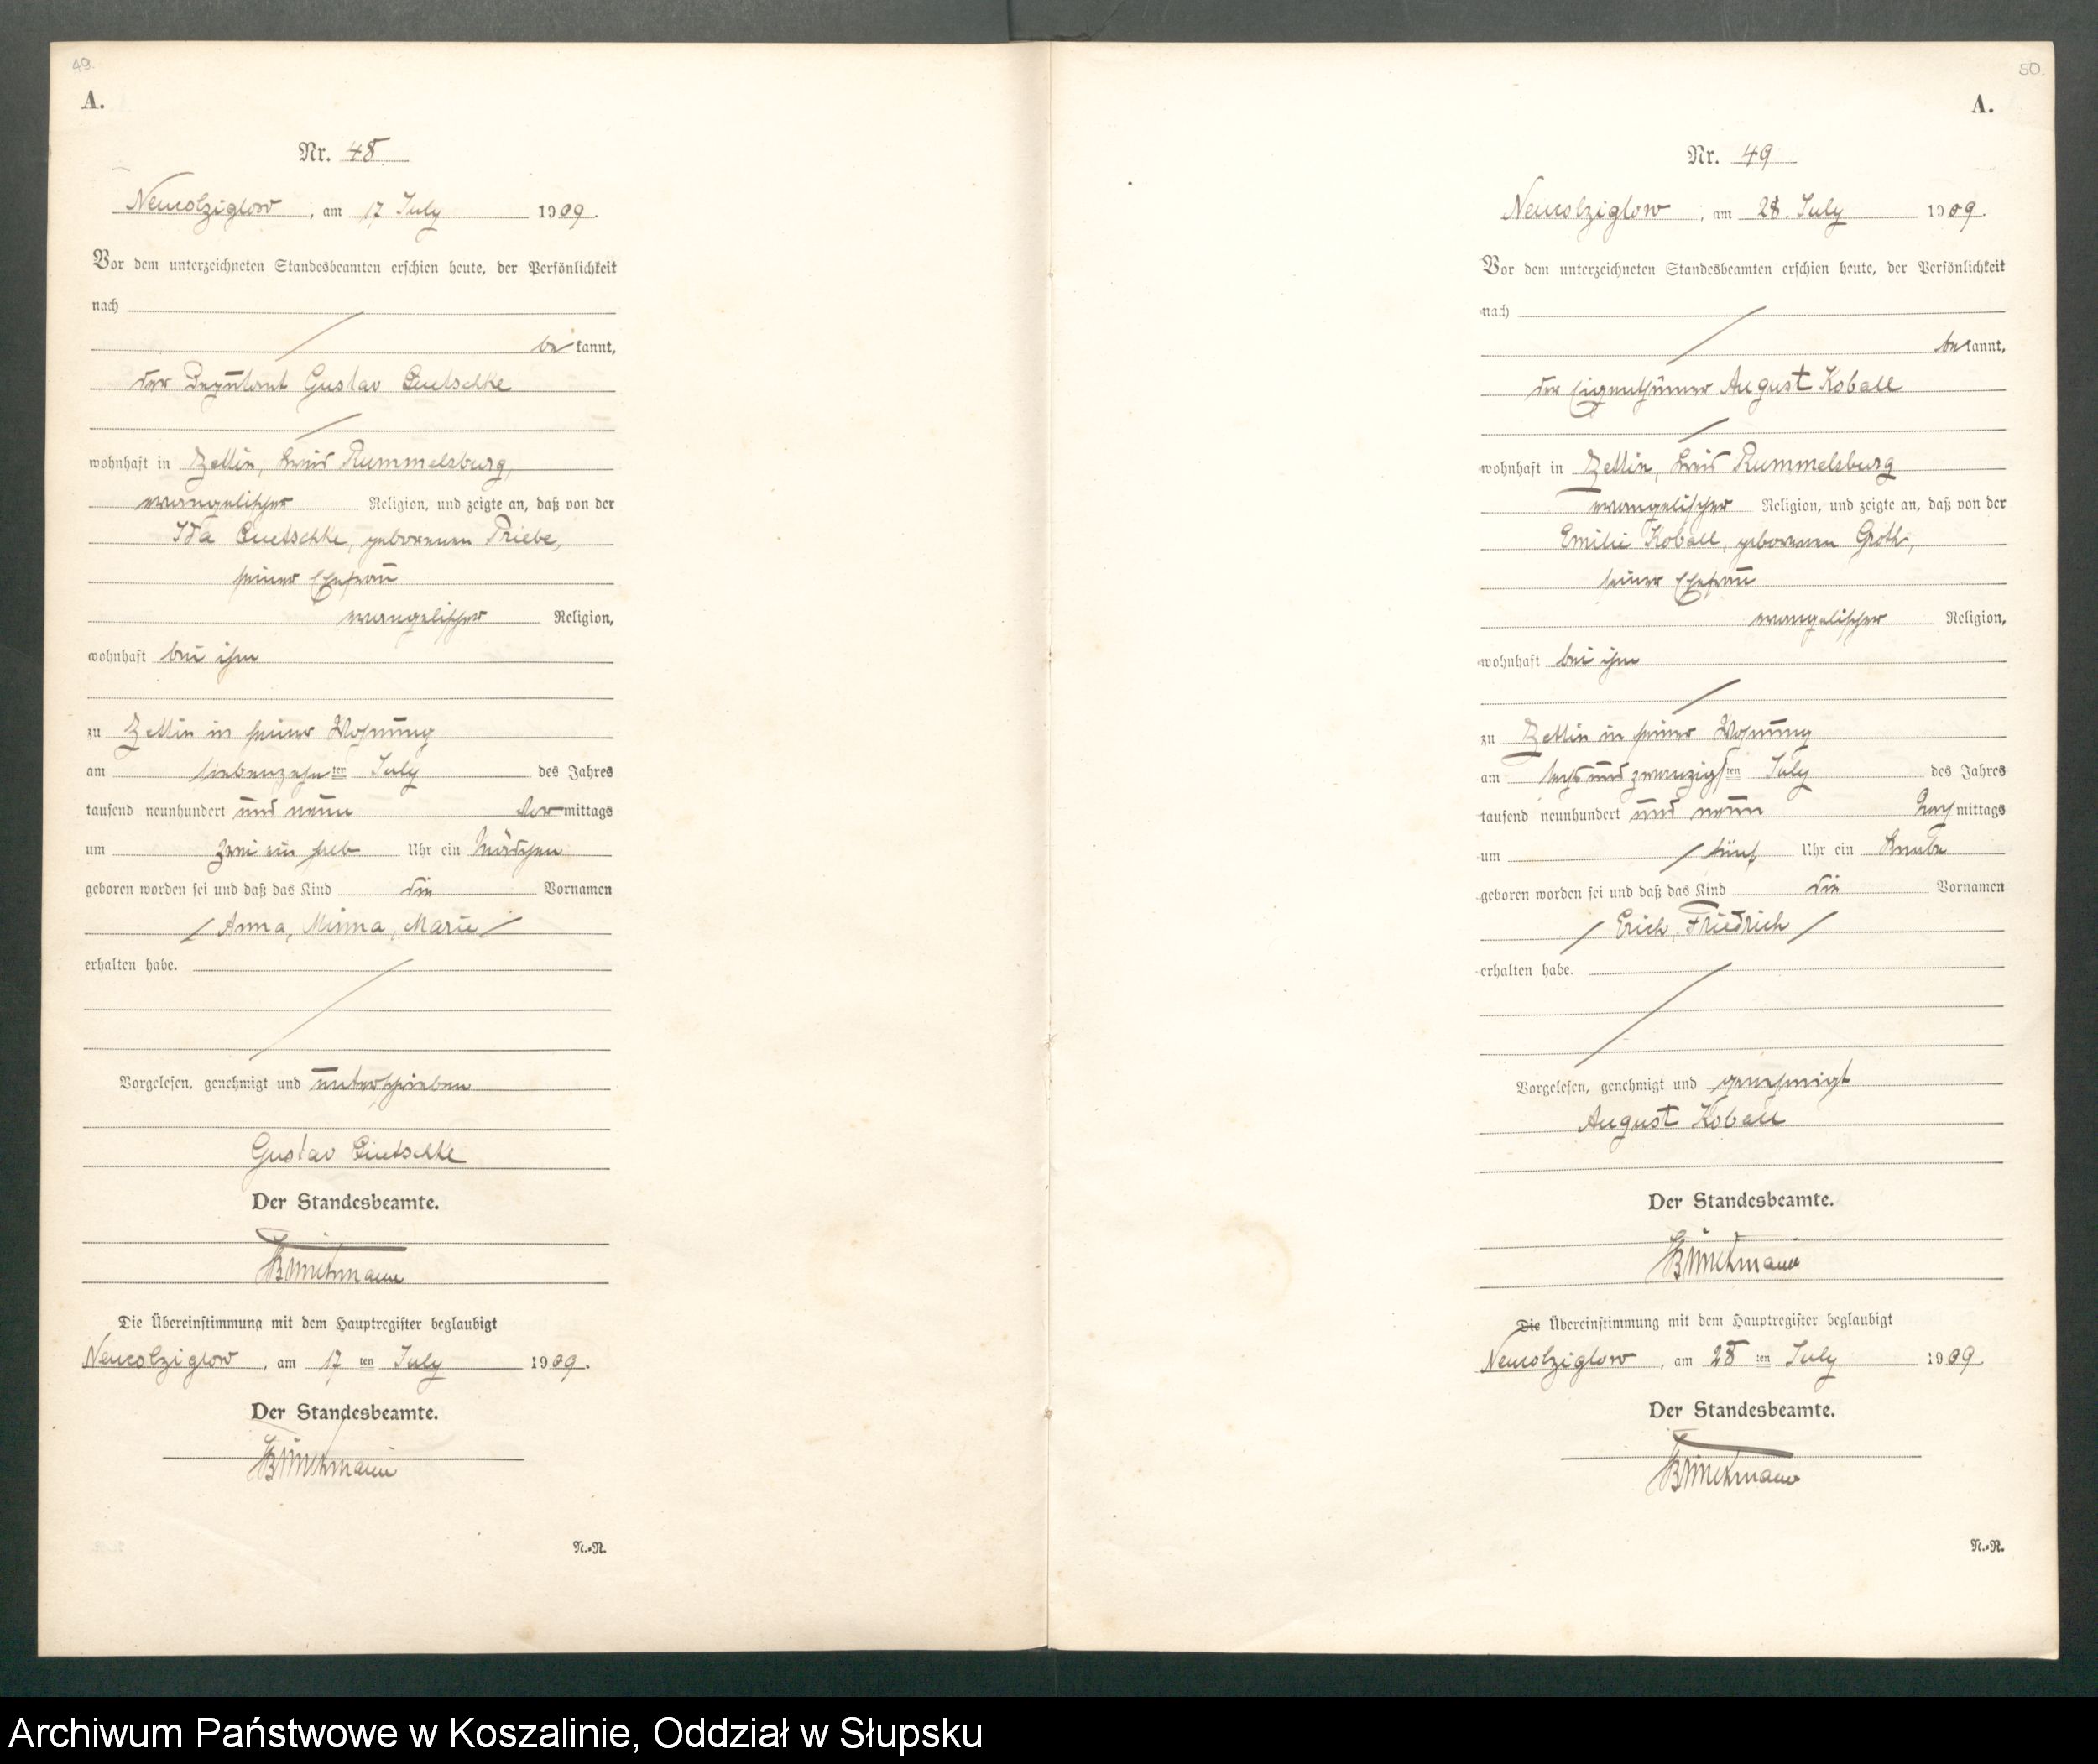 49.
A.
Nr. 48.
Neukolziglow, am 17 July 1909.
Vor dem unterzeichneten Standesbeamten erschien heute, der Persönlichkeit
nach
bekannt,
der Deputant Gustav
wohnhaft in Zettin, Kreis Rummelsburg,
evangelischer Religion, und zeigte an, daß von der
Ida geborenen Priebe,
seiner Ehefrau
evangelischer Religion,
wohnhaft bei ihm
zu Zettin in seiner Wohnung
am siebenzehnten July des Jahres
tausend neunhundert und neun Vormittags
um zwei ein halb Uhr ein Mädchen
geboren worden sei und daß das Kind die Vornamen
Anna, Minna, Marie
erhalten habe.
Vorgelesen, genehmigt und unterschrieben
Gustav
Der Standesbeamte.
Die Übereinstimmung mit dem Hauptregister beglaubigt
Neukolziglow, am 17 ten July 1909.
Der Standesbeamte.
N.-R.
50.
A.
Nr. 49
Neukolziglow, am 28. July 1909.
Vor dem unterzeichneten Standesbeamten erschien heute, der Persönlichkeit
nach
bekannt,
der Eigenthümer August Koball
wohnhaft in Zettin, Kreis Rummelsburg
evangelischer Religion, und zeigte an, daß von der
Emilie Koball, geborenen Groth,
seiner Ehefrau
evangelischer Religion,
wohnhaft bei ihm
zu Zettin in seiner Wohnung
am sechsundzwanzigsten July des Jahres
tausend neunhundert und neun Nachmittags
um fünf Uhr ein Knabe
geboren worden sei und daß das Kind die Vornamen
Erich, Friedrich
erhalten habe.
Vorgelesen, genehmigt und genehmigt
August Koball
Der Standesbeamte.
Die Übereinstimmung mit dem Hauptregister beglaubigt
Neukolziglow, am 28 ten July 1909.
Der Standesbeamte.
N.-R.
Archiwum Państwowe w Koszalinie, Oddział w Słupsku